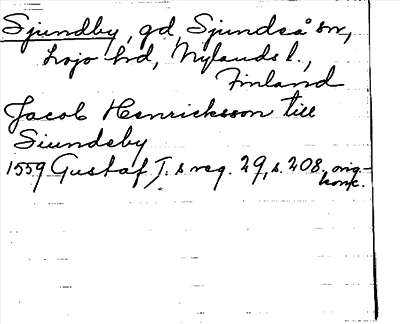 Sjundby, gd, Sjundeå sn,
Lojo hd, Nylands l.,
Finland
Jacob Henricksson till
Siundeby
1559 Gustaf I.s reg. 29, s. 208, orig.-
konc.